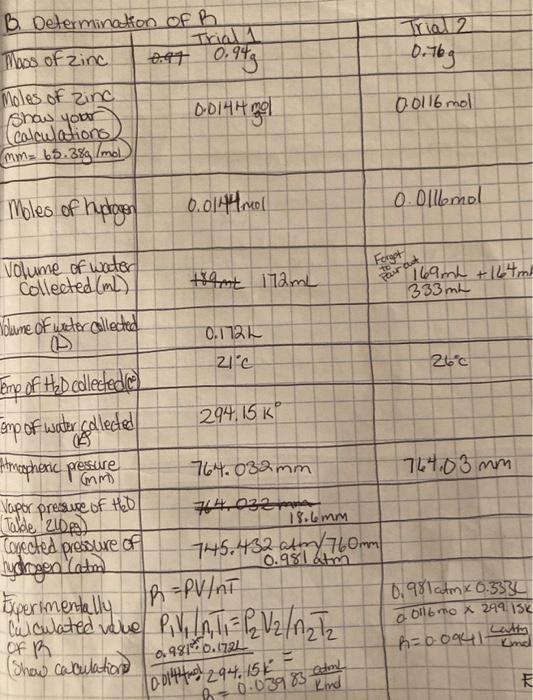 B. Determination of R
Trial 1 Trial 2
Mass of zinc 0.97 0.94g 0.76g
Moles of zinc
(show your
calculations)
mm= 65.38g/mol
0.0144 mol 0.0116 mol
Moles of hydrogen 0.0144 mol 0.0116 mol
Volume of water
collected (mL)
172mL
Forgot
to
pour out
169mL + 164mL
333mL
Volume of water collected
(L)
0.172L
Temp of H2O collected (C°) 21°C 26°C
Temp of water collected
294.15 K°
Atmospheric pressure
(mm)
764.032mm 764.03 mm
Vapor pressure of H2O
(Table 210pg)
764.032 mm
18.6mm
Corrected pressure of
hydrogen (atm)
745.432 atm/760mm
0.981 atm
Experimentally
Calculated value
of R
(Show calculation)
R = PV/nT
P1V1/n1T1 = P2V2/n2T2
0.981 0.172L
0.0144mol 294.15K =
R = 0.03983 atmL/Kmol
0.981atm x 0.333L
0.0116mo x 299.15K
R=0.0941 Latm/Kmol